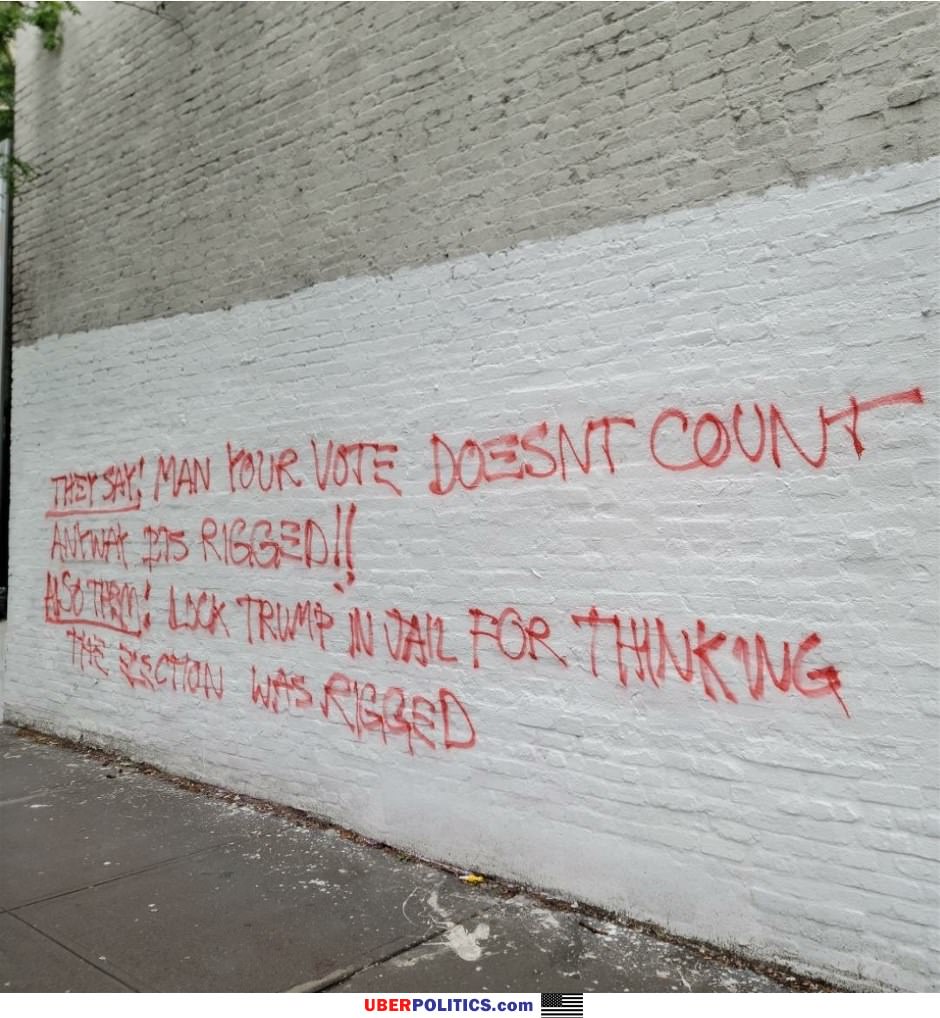 THEY SAY! MAN YOUR VOTE DOESNT COUNT
ANYWAY ITS RIGGED!!
ALSO THEM! LOCK TRUMP IN JAIL FOR THINKING
THE ELECTION WAS RIGGED
UBERPOLITICS.com